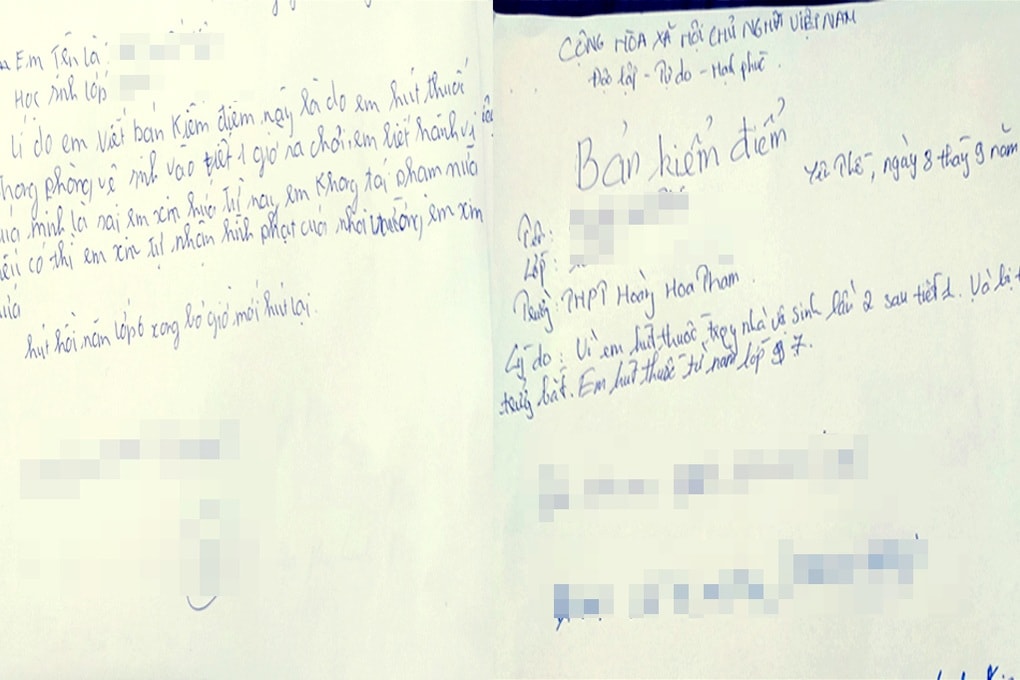 Em Tên là:
Học sinh lớp
Lí do em viết bản kiểm điểm này là do em hút thuốc
trong phòng vệ sinh vào tiết 1 giờ ra chơi, em biết hành vi
của mình là sai em xin hứa từ nay em không tái phạm nữa
nếu có thì em xin tự nhận hình phạt của nhà trường, em xin
hút hồi năm lớp 6 xong bỏ giờ mới hút lại.
CỘNG HÒA XÃ HỘI CHỦ NGHĨA VIỆT NAM
Độc lập - Tự do - Hạnh phúc.
Bản kiểm điểm
Yên Thế, ngày 8 tháng 9 năm
Tên:
Lớp:
Trường: THPT Hoàng Hoa Thám.
Lý do: Vì em hút thuốc trong nhà vệ sinh lần 2 sau tiết 1. Và bị
trường bắt. Em hút thuốc từ năm lớp 7.